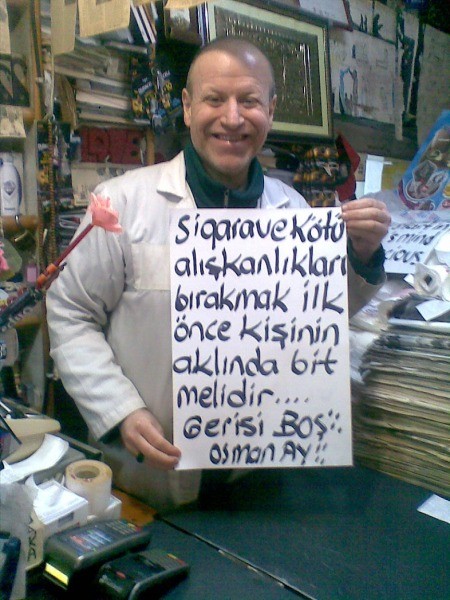 Sigara ve Kötü
alışkanlıkları
bırakmak ilk
önce kişinin
aklında bit
melidir....
Gerisi BOŞ..
osman AY..